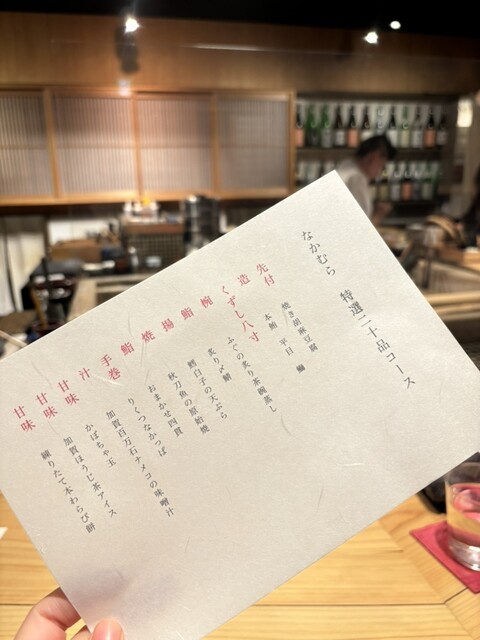 なかむら 特選二十品コース
先付 焼き胡麻豆腐
造 本鮪 平目 鰤
くずし八寸
椀 ふぐの炙り茶碗蒸し
鮨 炙り〆鯖
揚 鱈白子の天ぷら
焼 秋刀魚の原始焼
鮨 おまかせ四貫
手巻 りくつなかっぱ
汁 加賀百万石ナメコの味噌汁
甘味 かぼちゃ玉
甘味 加賀ほうじ茶アイス
甘味 練りたて本わらび餅